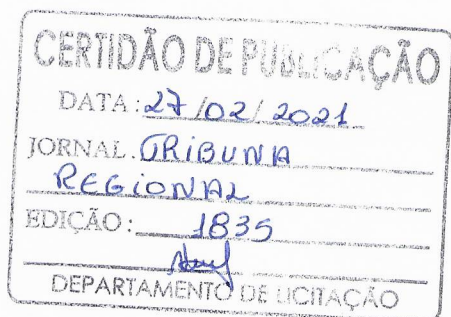 CERTIDÃO DE PUBLICAÇÃO
DATA: 27/02/2021
JORNAL. TRIBUNA
REGIONAL
EDIÇÃO: 1835
DEPARTAMENTO DE LICITAÇÃO